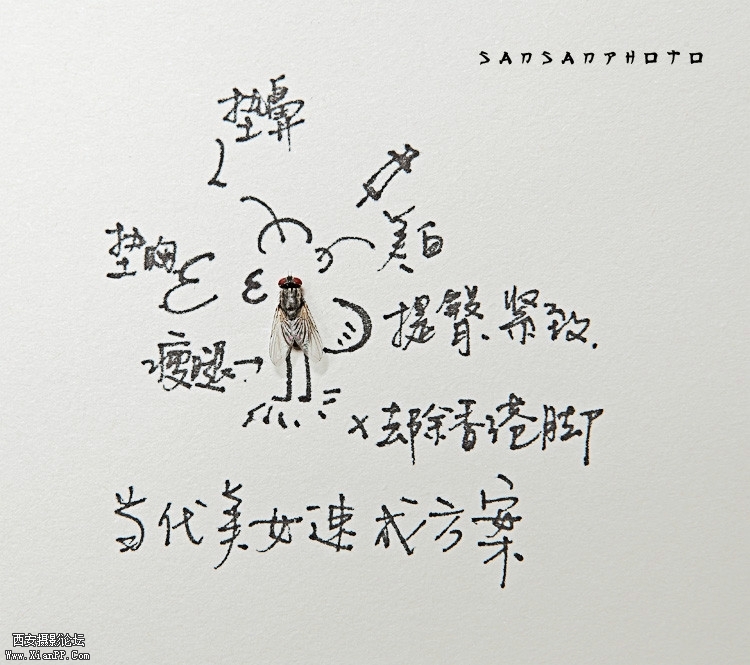 SANSANPHOTO
垫鼻
美白
垫胸
提臀、紧致.
瘦腿→
x去除香港脚
当代美女速成方案
西安摄影论坛
www.XianPP.Com